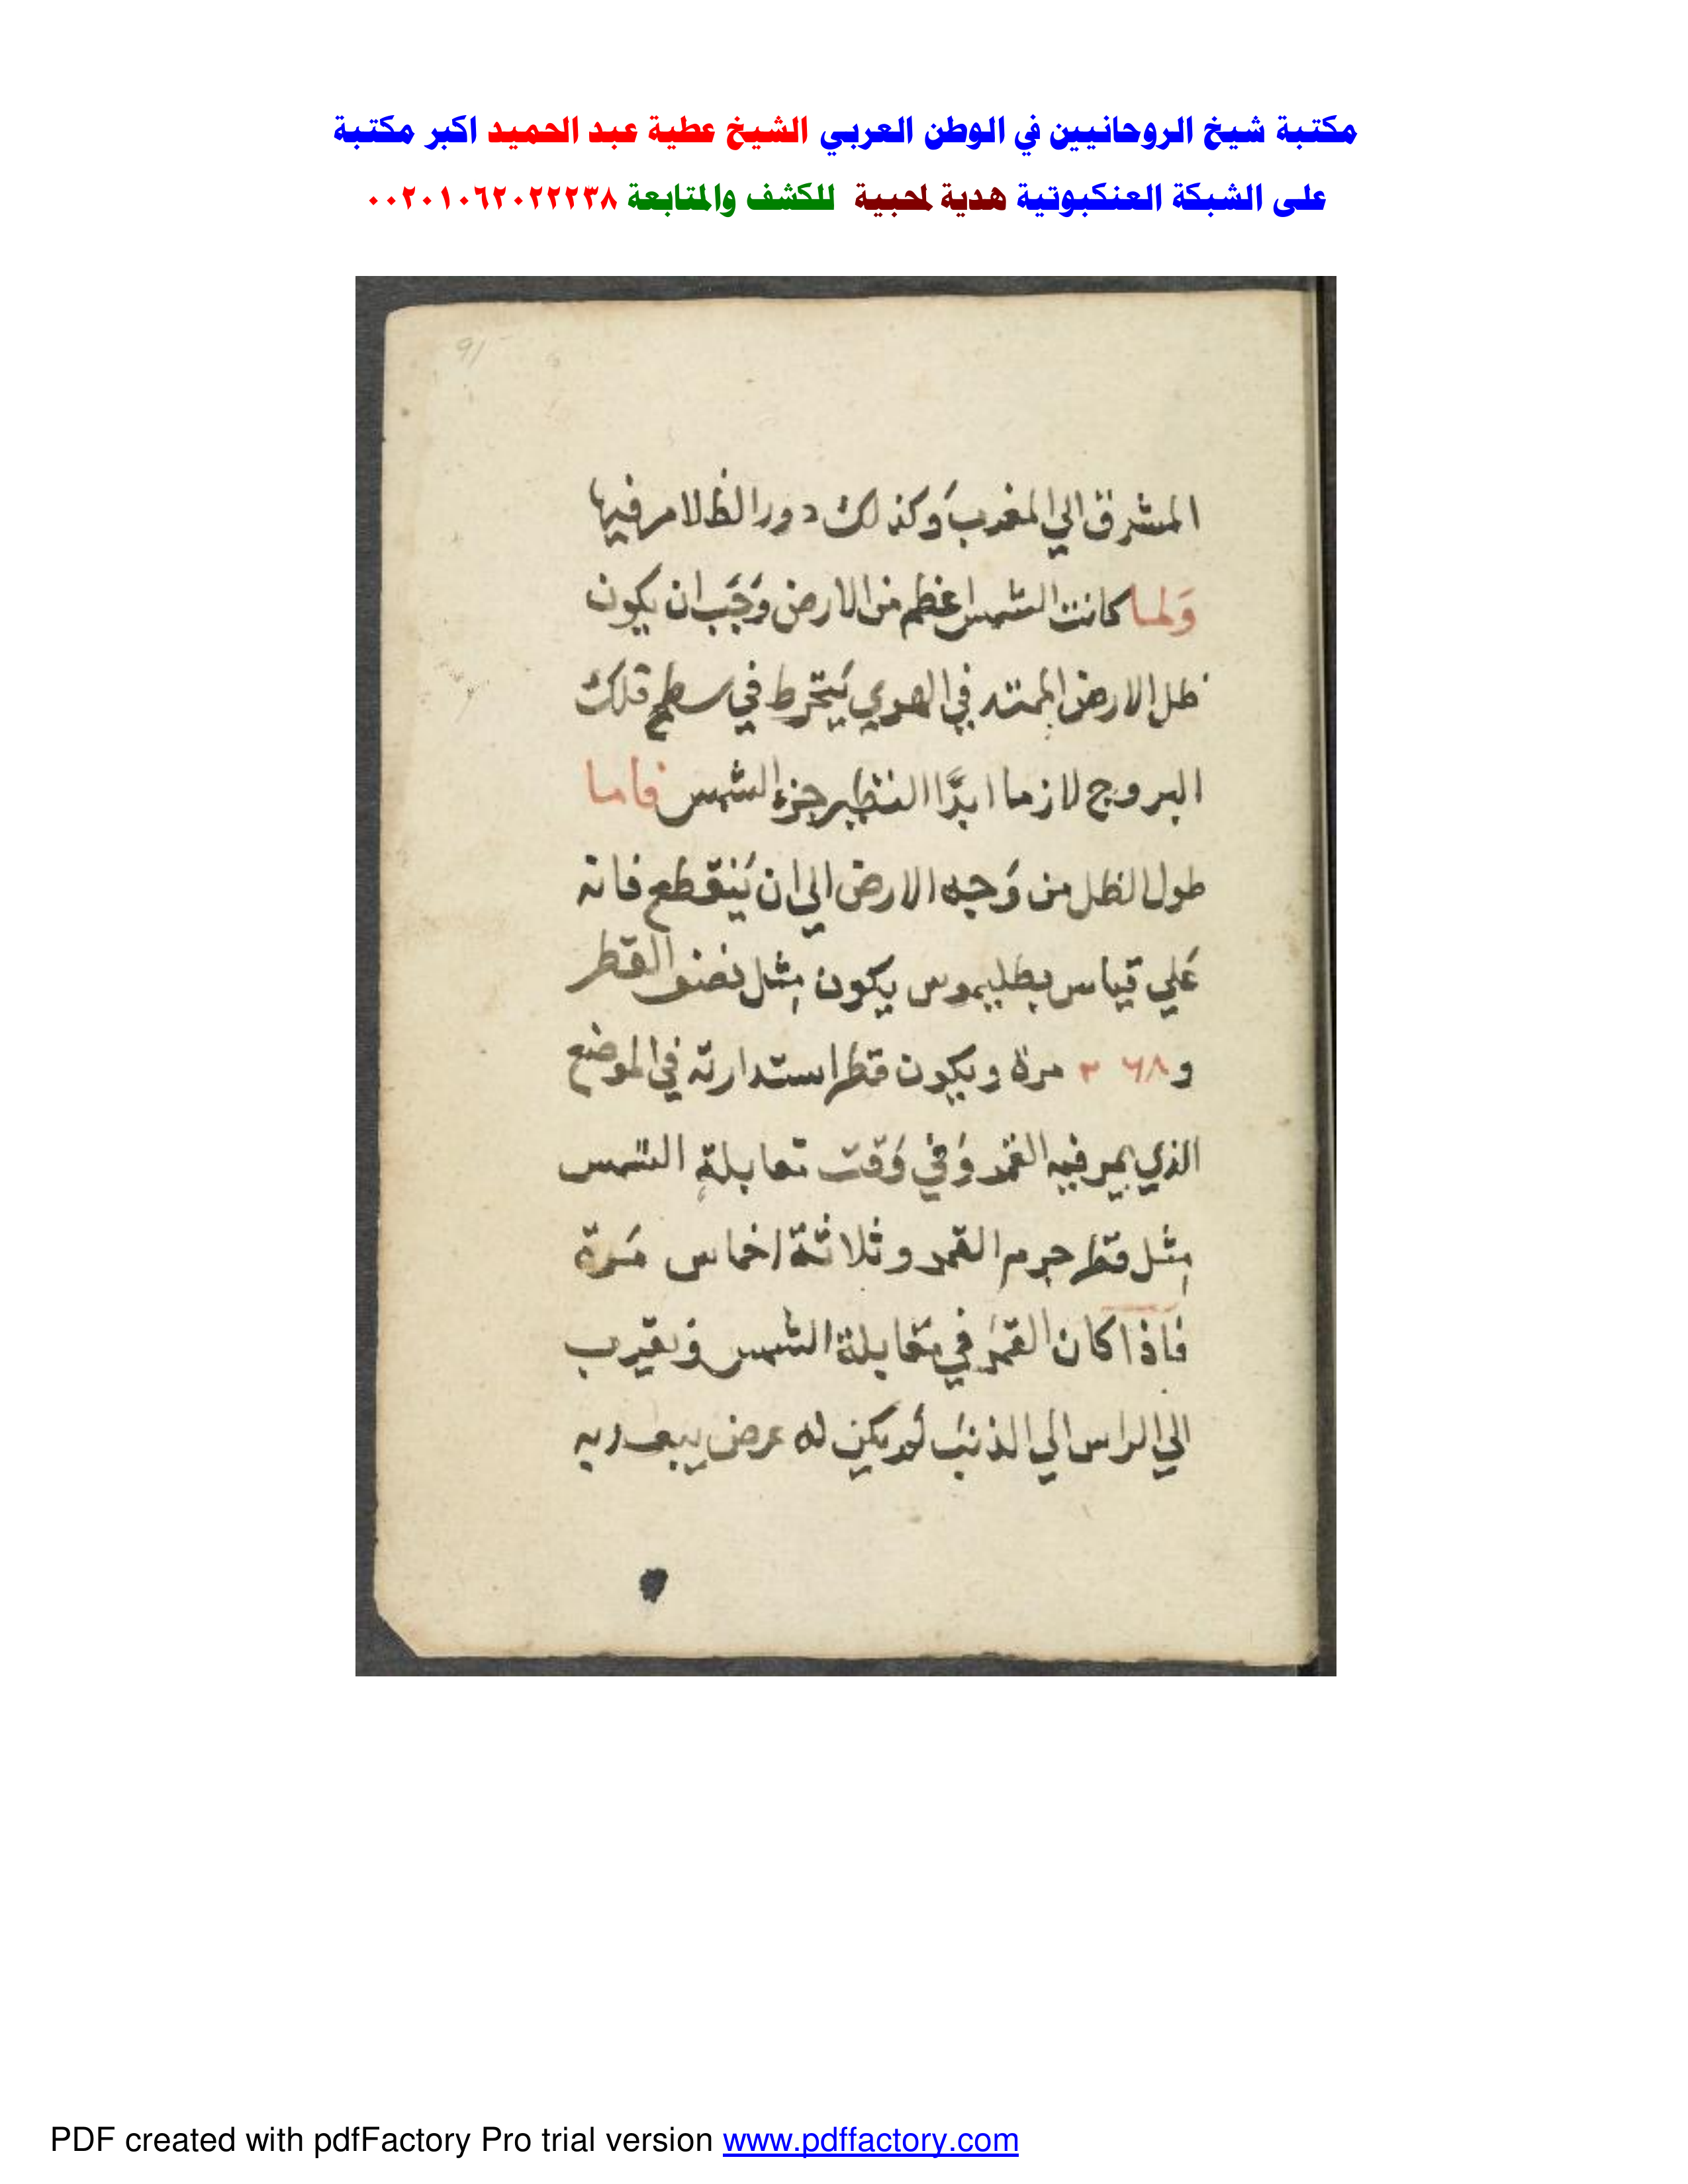 مكتبة شيخ الروحانيين في الوطن العربي الشيخ عطية عبد الحميد اكبر مكتبة
على الشبكة العنكبوتية هدية لمحبية للكشف والمتابعة ٠٠٢٠١٠٦٢٠٢٢٢٣٨
91
المشرق الي المغرب وَكذلك دور الظلام فيها
وَلما كانت الشمس اعظم من الارض وَجَب ان يكون
ظل الارض الممتد في الهوي يَنخرط في سطح فلك
البروج لازما ابدًا النظير جزء الشمس فاما
طول الظل من وَجه الارض الي ان يَنقطع فانه
عَلي قياس بطليموس يكون مثل نصف القطر
و٢٦٨ مرة ويكون قطر استدارته في الموضع
الذي يمر فيه القمر وَفي وَقت تقابلة الشمس
مثل قطر جرم القمر وثلاثة اخماس مَرة
فاذا كان القمَر في مقابلة الشمس وَبقرب
الي الراس الي الذنب لَم يكن له عرض يبعد به
PDF created with pdfFactory Pro trial version www.pdffactory.com